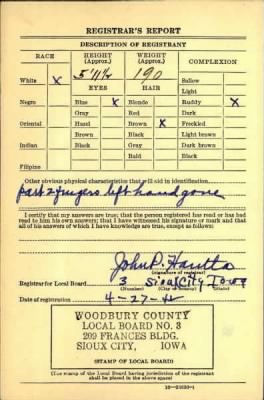 REGISTRAR'S REPORT
DESCRIPTION OF REGISTRANT
RACE HEIGHT (Approx.) WEIGHT (Approx.) COMPLEXION
5'11½ 190
White X EYES HAIR Sallow
Light
Negro Blue X Blonde Ruddy X
Gray Red Dark
Oriental Hazel Brown X Freckled
Brown Black Light brown
Indian Black Gray Dark brown
Bald Black
Filipino
Other obvious physical characteristics that will aid in identification
part 2 fingers left hand gone
I certify that my answers are true; that the person registered has read or has had
read to him his own answers; that I have witnessed his signature or mark and that
all of his answers of which I have knowledge are true, except as follows:
John P.
(signature of registrar)
Registrar for Local Board 3 Sioux City Iowa
(Number) (City or county) (State)
Date of registration 4-27-42
WOODBURY COUNTY
LOCAL BOARD NO. 3
209 FRANCES BLDG.
SIOUX CITY, IOWA
(STAMP OF LOCAL BOARD)
(The stamp of the Local Board having jurisdiction of the registrant
shall be placed in the above space.)